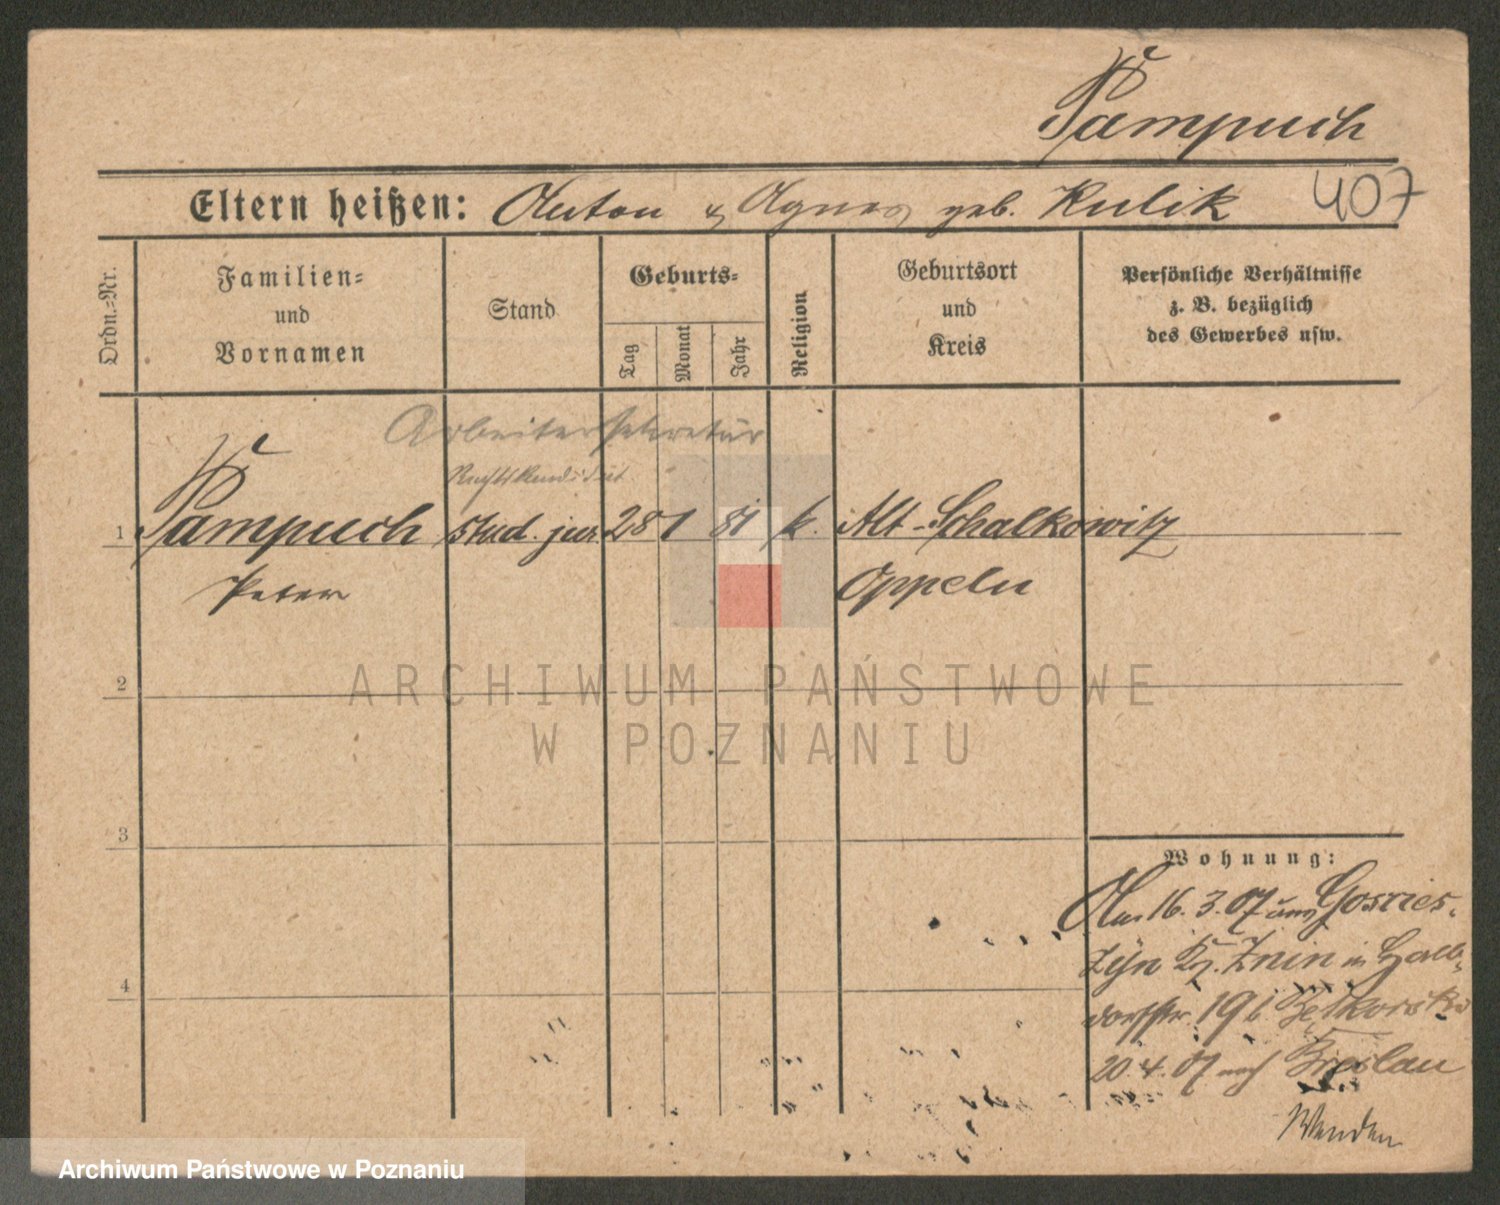 Pampuch
Eltern heißen: Anton & Agnes geb. Kulik 407
Ordn.=Nr.
Familien=
und
Vornamen
Stand
Geburts=
Tag
Monat
Jahr
Religion
Geburtsort
und
Kreis
Persönliche Verhältnisse
z. B. bezüglich
des Gewerbes usw.
Arbeitersekretär
Rechtskandidat
1 Pampuch stud. jur. 28 1 81 k. Alt-Schalkowitz
Peter Oppeln
2
3
4
Wohnung:
Am 16. 3. 07 aus
Kr. Znin in
19 b.
20. 4. 07 nach Breslau
Wenden
ARCHIWUM PAŃSTWOWE
W POZNANIU
Archiwum Państwowe w Poznaniu